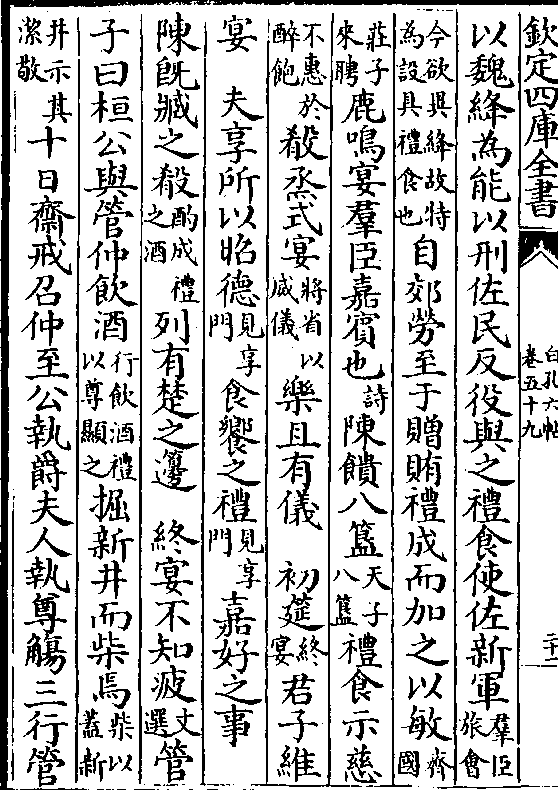 欽定四庫全書 白孔六帖 卷五十九 二十一
以魏絳為能以刑佐民反役與之禮食使佐新軍羣臣旅會
今欲與絳故特為設具禮食也自郊勞至于贈賄禮成而加之以敏齊國
莊子來聘鹿鳴宴羣臣嘉賓也詩陳饋八簋天子八簋禮食示慈
不惠於醉飽殽烝式宴將省以威儀樂且有儀 初筵終宴君子維
宴 夫享所以昭德見享門食饗之禮見享門嘉好之事
陳旣臧之殽酌成禮之酒列有楚之籩 終宴不知疲文選管
子曰桓公與管仲飲酒行飲酒禮以尊顯之掘新井而柴焉柴以蓋新
井示其潔敬十日齋戒召仲至公執爵夫人執尊觴三行管